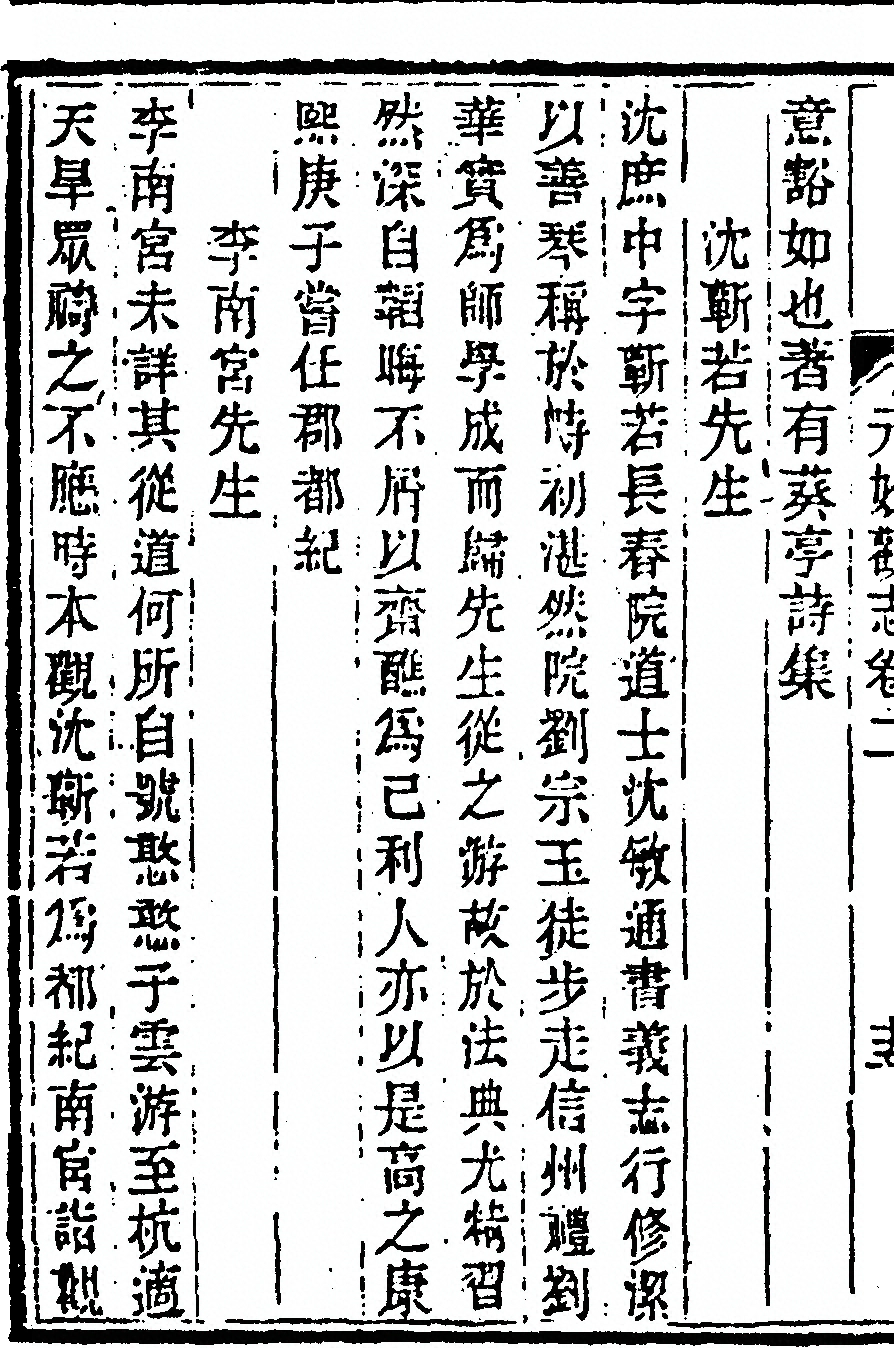 元妙觀志卷二
意豁如也著有葵亭詩集
沈靳若先生
沈庶中字靳若長春院道士沈敏通書義志行修潔
以善琴稱於時初湛然院劉宗玉徒步走信州禮劉
華實為師學成而歸先生從之游故於法典尤精習
然深自韜晦不屑以齋醮為己利人亦以是高之康
熙庚子嘗任郡都紀
李南宮先生
李南宮未詳其從道何所自號憨憨子雲游至杭適
天旱眾禱之不應時本觀沈靳若為都紀南宮詣觀